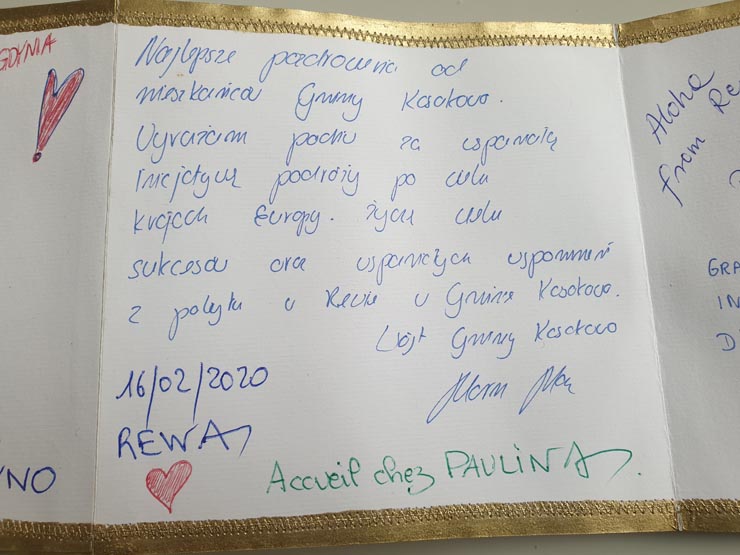 GDYNIA
Najlepsze pozdrowienia od
mieszkańców Gminy Kosakowo.
Wyrażam podziw za wspaniałą
inicjatywę podróży po wielu
krajach Europy. Życzę wielu
sukcesów oraz wspaniałych wspomnień
z pobytu w Rewie w Gminie Kosakowo.
Wójt Gminy Kosakowo
16/02/2020
REWA
Accueil chez PAULINA.
YNO
Aloha
from Re
GRA
IN
D